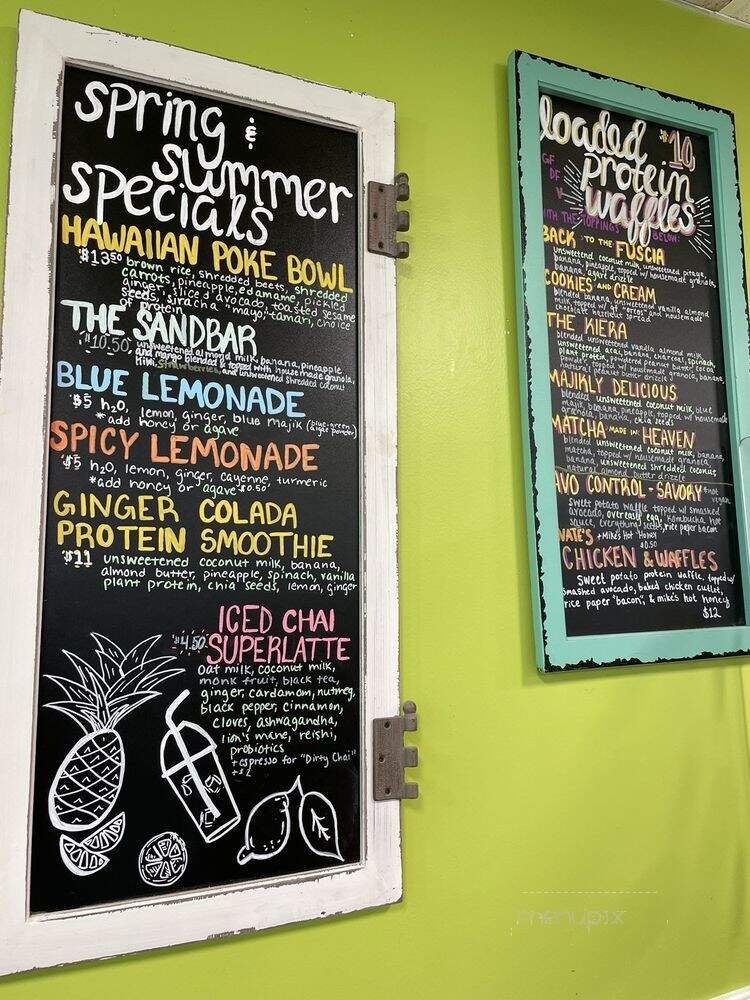 spring &
summer
specials
HAWAIIAN POKE BOWL
$13.50 brown rice, shredded beets, shredded
carrots, pineapple, edamame, pickled
ginger, sliced avocado, toasted sesame
seeds, sriracha "mayo," tamari, choice
of protein
THE SANDBAR
$10.50 unsweetened almond milk, banana, pineapple
and mango blended & topped with housemade granola,
kiwi, strawberries, and unsweetened shredded coconut
BLUE LEMONADE
$5 h2o, lemon, ginger, blue majik (blue-green
algae powder)
*add honey or agave
SPICY LEMONADE
$5 h2o, lemon, ginger, cayenne, turmeric
*add honey or agave $0.50
GINGER COLADA
PROTEIN SMOOTHIE
$11 unsweetened coconut milk, banana,
almond butter, pineapple, spinach, vanilla
plant protein, chia seeds, lemon, ginger
ICED CHAI
$4.50 SUPERLATTE
oat milk, coconut milk,
monk fruit, black tea,
ginger, cardamom, nutmeg,
black pepper, cinnamon,
cloves, ashwagandha,
lion's mane, reishi,
probiotics
+espresso for "Dirty Chai"
+$2
loaded $10
protein
waffles
GF
DF
V
WITH THE TOPPINGS BELOW:
BACK TO THE FUSCIA
unsweetened coconut milk, unsweetened pitaya,
banana, pineapple, topped w/ housemade granola,
banana, agave drizzle
COOKIES AND CREAM
blended banana, unsweetened vanilla almond
milk, topped w/ gf "oreos" and housemade
chocolate hazelnut spread
THE KIERA
blended unsweetened vanilla almond milk,
unsweetened acai, banana, charcoal, spinach,
plant protein, powdered peanut butter, cocoa
powder, topped w/ housemade granola, banana,
peanut butter drizzle
MAJIKLY DELICIOUS
blended unsweetened coconut milk, blue
majik, banana, pineapple, topped w/ housemade
granola, banana, chia seeds
MATCHA MADE IN HEAVEN
blended unsweetened coconut milk, banana,
matcha, topped w/ housemade granola,
banana, unsweetened shredded coconut,
natural almond butter drizzle
AVO CONTROL - SAVORY *not
vegan
sweet potato waffle topped w/ smashed
avocado, overeasy egg, kombucha hot
sauce, everything seeds, rice paper bacon
+Mike's Hot Honey
$0.50
NATE'S
CHICKEN & WAFFLES
Sweet potato protein waffle, topped w/
smashed avocado, baked chicken cutlet,
rice paper "bacon", & mike's hot honey
$12
menupix